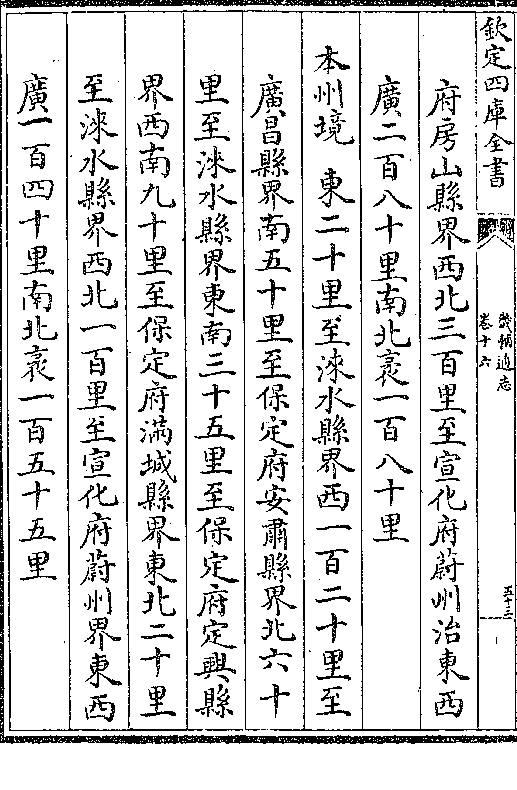 欽定四庫全書
畿輔通志
卷十六
五十三
府房山縣界西北三百里至宣化府蔚州治東西
廣二百八十里南北袤一百八十里
本州境 東二十里至淶水縣界西一百二十里至
廣昌縣界南五十里至保定府安肅縣界北六十
里至淶水縣界東南三十五里至保定府定興縣
界西南九十里至保定府滿城縣界東北二十里
至淶水縣界西北一百里至宣化府蔚州界東西
廣一百四十里南北袤一百五十五里